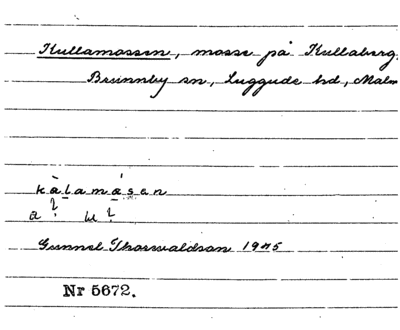 Kullamossen, mosse på Kullaberg,
Brunnby sn, Luggude hd, Malm
kàlamásen
a ? u ?
Gunnel Thorwaldson 1975
Nr 5672.